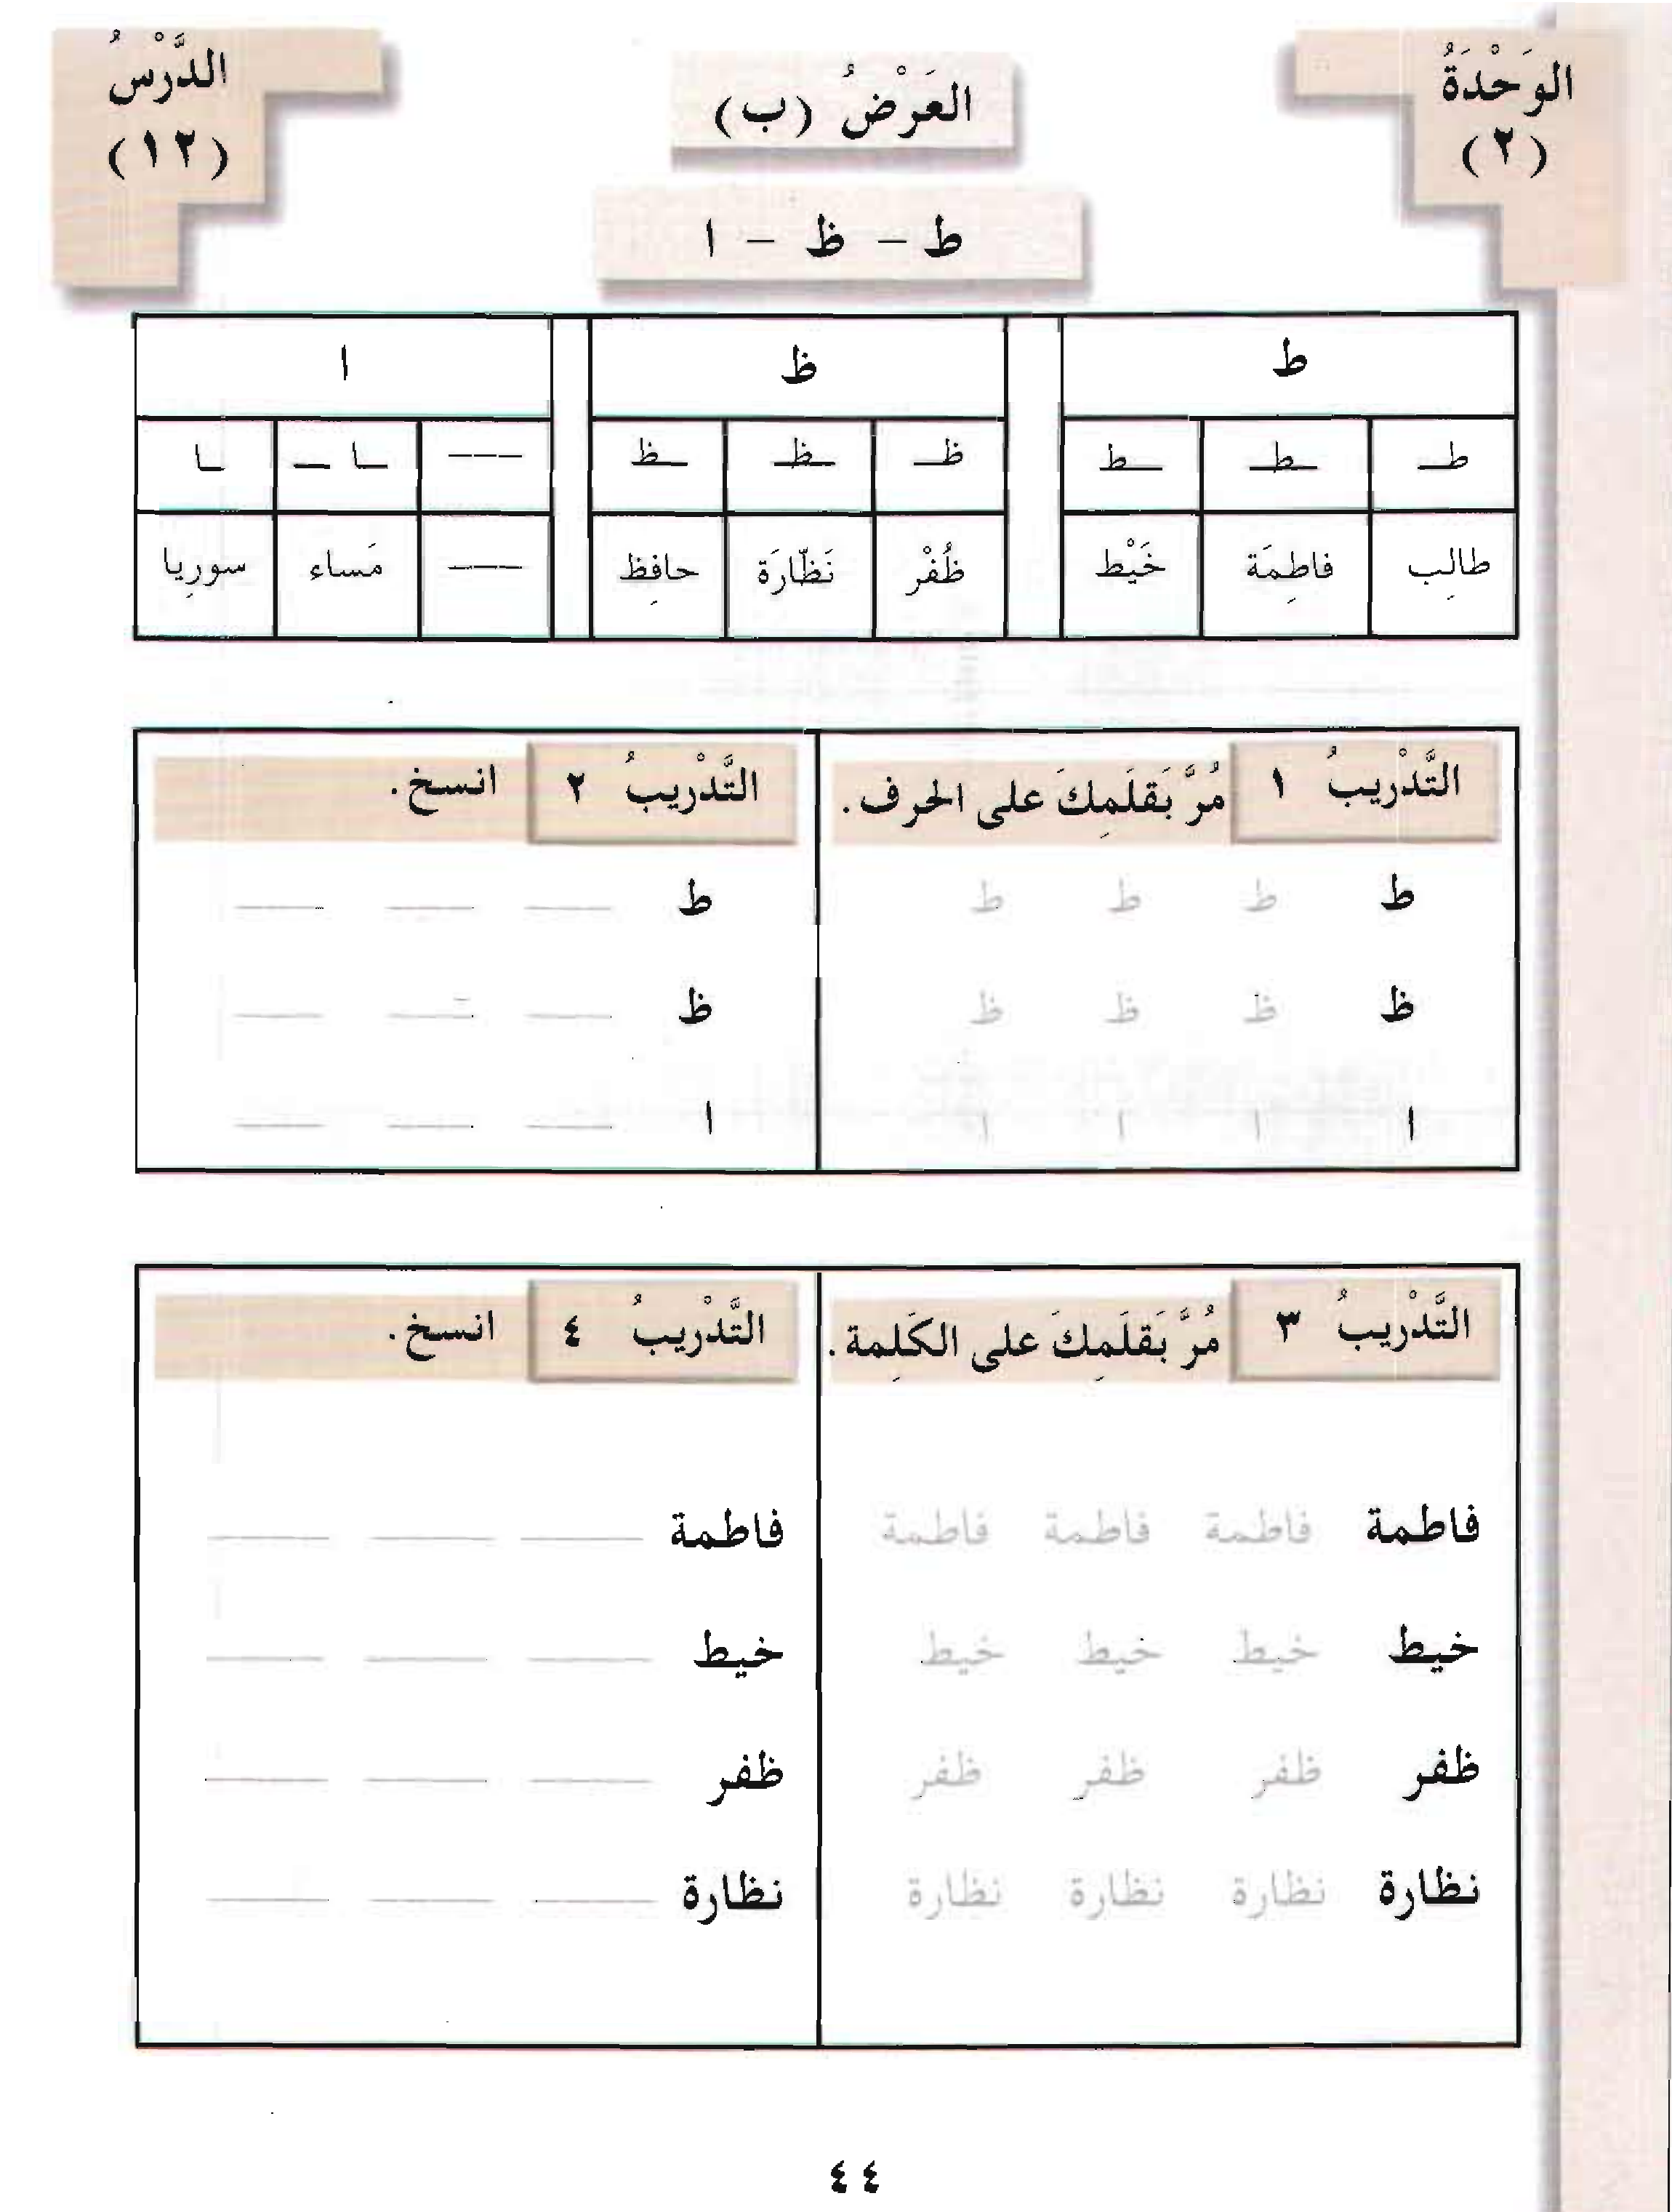 الوَحْدَةُ
(٢)
العَرْضُ (ب)
الدَّرْسُ
(١٢)
ط - ظ - ا
ط ظ ا
طـ ـطـ ـط ظـ ـظـ ـظ --- ـا ــ ـا
طالِب فاطِمَة خَيْط ظُفْر نَظّارَة حافِظ --- مَساء سورِيا
التَّدْرِيبُ ١ مُرَّ بَقلَمِكَ على الحرف.
ط ط ط ط
ظ ظ ظ ظ
ا ا ا ا
التَّدْرِيبُ ٢ انسخ.
ط
ظ
ا
التَّدْرِيبُ ٣ مُرَّ بَقلَمِكَ على الكَلِمة.
فاطمة فاطمة فاطمة فاطمة
خيط خيط خيط خيط
ظفر ظفر ظفر ظفر
نظارة نظارة نظارة نظارة
التَّدْرِيبُ ٤ انسخ.
فاطمة
خيط
ظفر
نظارة
٤٤